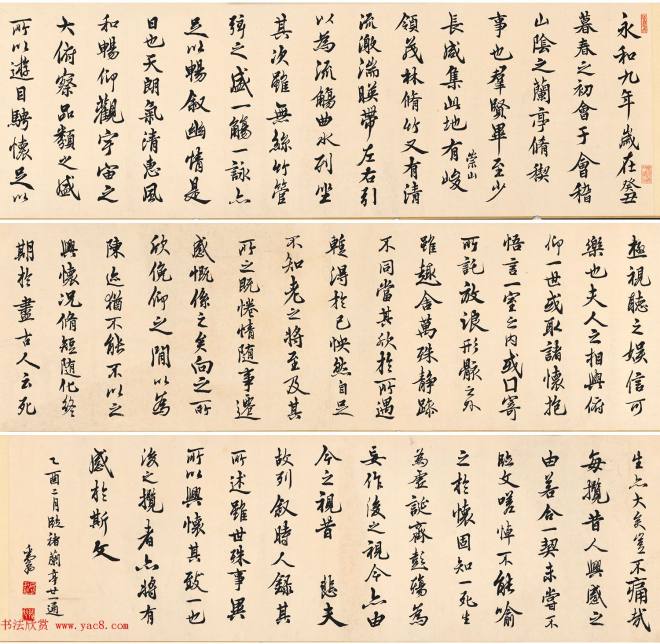 永和九年歲在癸丑
暮春之初會于會稽
山陰之蘭亭脩禊
事也羣賢畢至少
長咸集此地有峻
崇山
領茂林脩竹又有清
流激湍暎帶左右引
以為流觴曲水列坐
其次雖無絲竹管
弦之盛一觴一詠亦
足以暢敘幽情是
日也天朗氣清惠風
和暢仰觀宇宙之
大俯察品類之盛
所以遊目騁懷足以
極視聽之娛信可
樂也夫人之相與俯
仰一世或取諸懷抱
悟言一室之內或口寄
所託放浪形骸之外
雖趣舍萬殊靜躁
不同當其欣於所遇
蹔得於己怏然自足
不知老之將至及其
所之既惓情隨事遷
感慨係之矣向之所
欣俛仰之間以為
陳迹猶不能不以之
興懷況脩短隨化終
期於盡古人云死
生亦大矣豈不痛哉
每攬昔人興感之
由若合一契未嘗不
臨文嗟悼不能喻
之於懷固知一死生
為虛誕齊彭殤為
妄作後之視今亦由
今之視昔 悲夫
故列敘時人錄其
所述雖世殊事異
所以興懷其致一也
後之攬者亦將有
感於斯文
乙酉二月臨褚蘭亭廿一通
书法欣赏 www.yac8.com